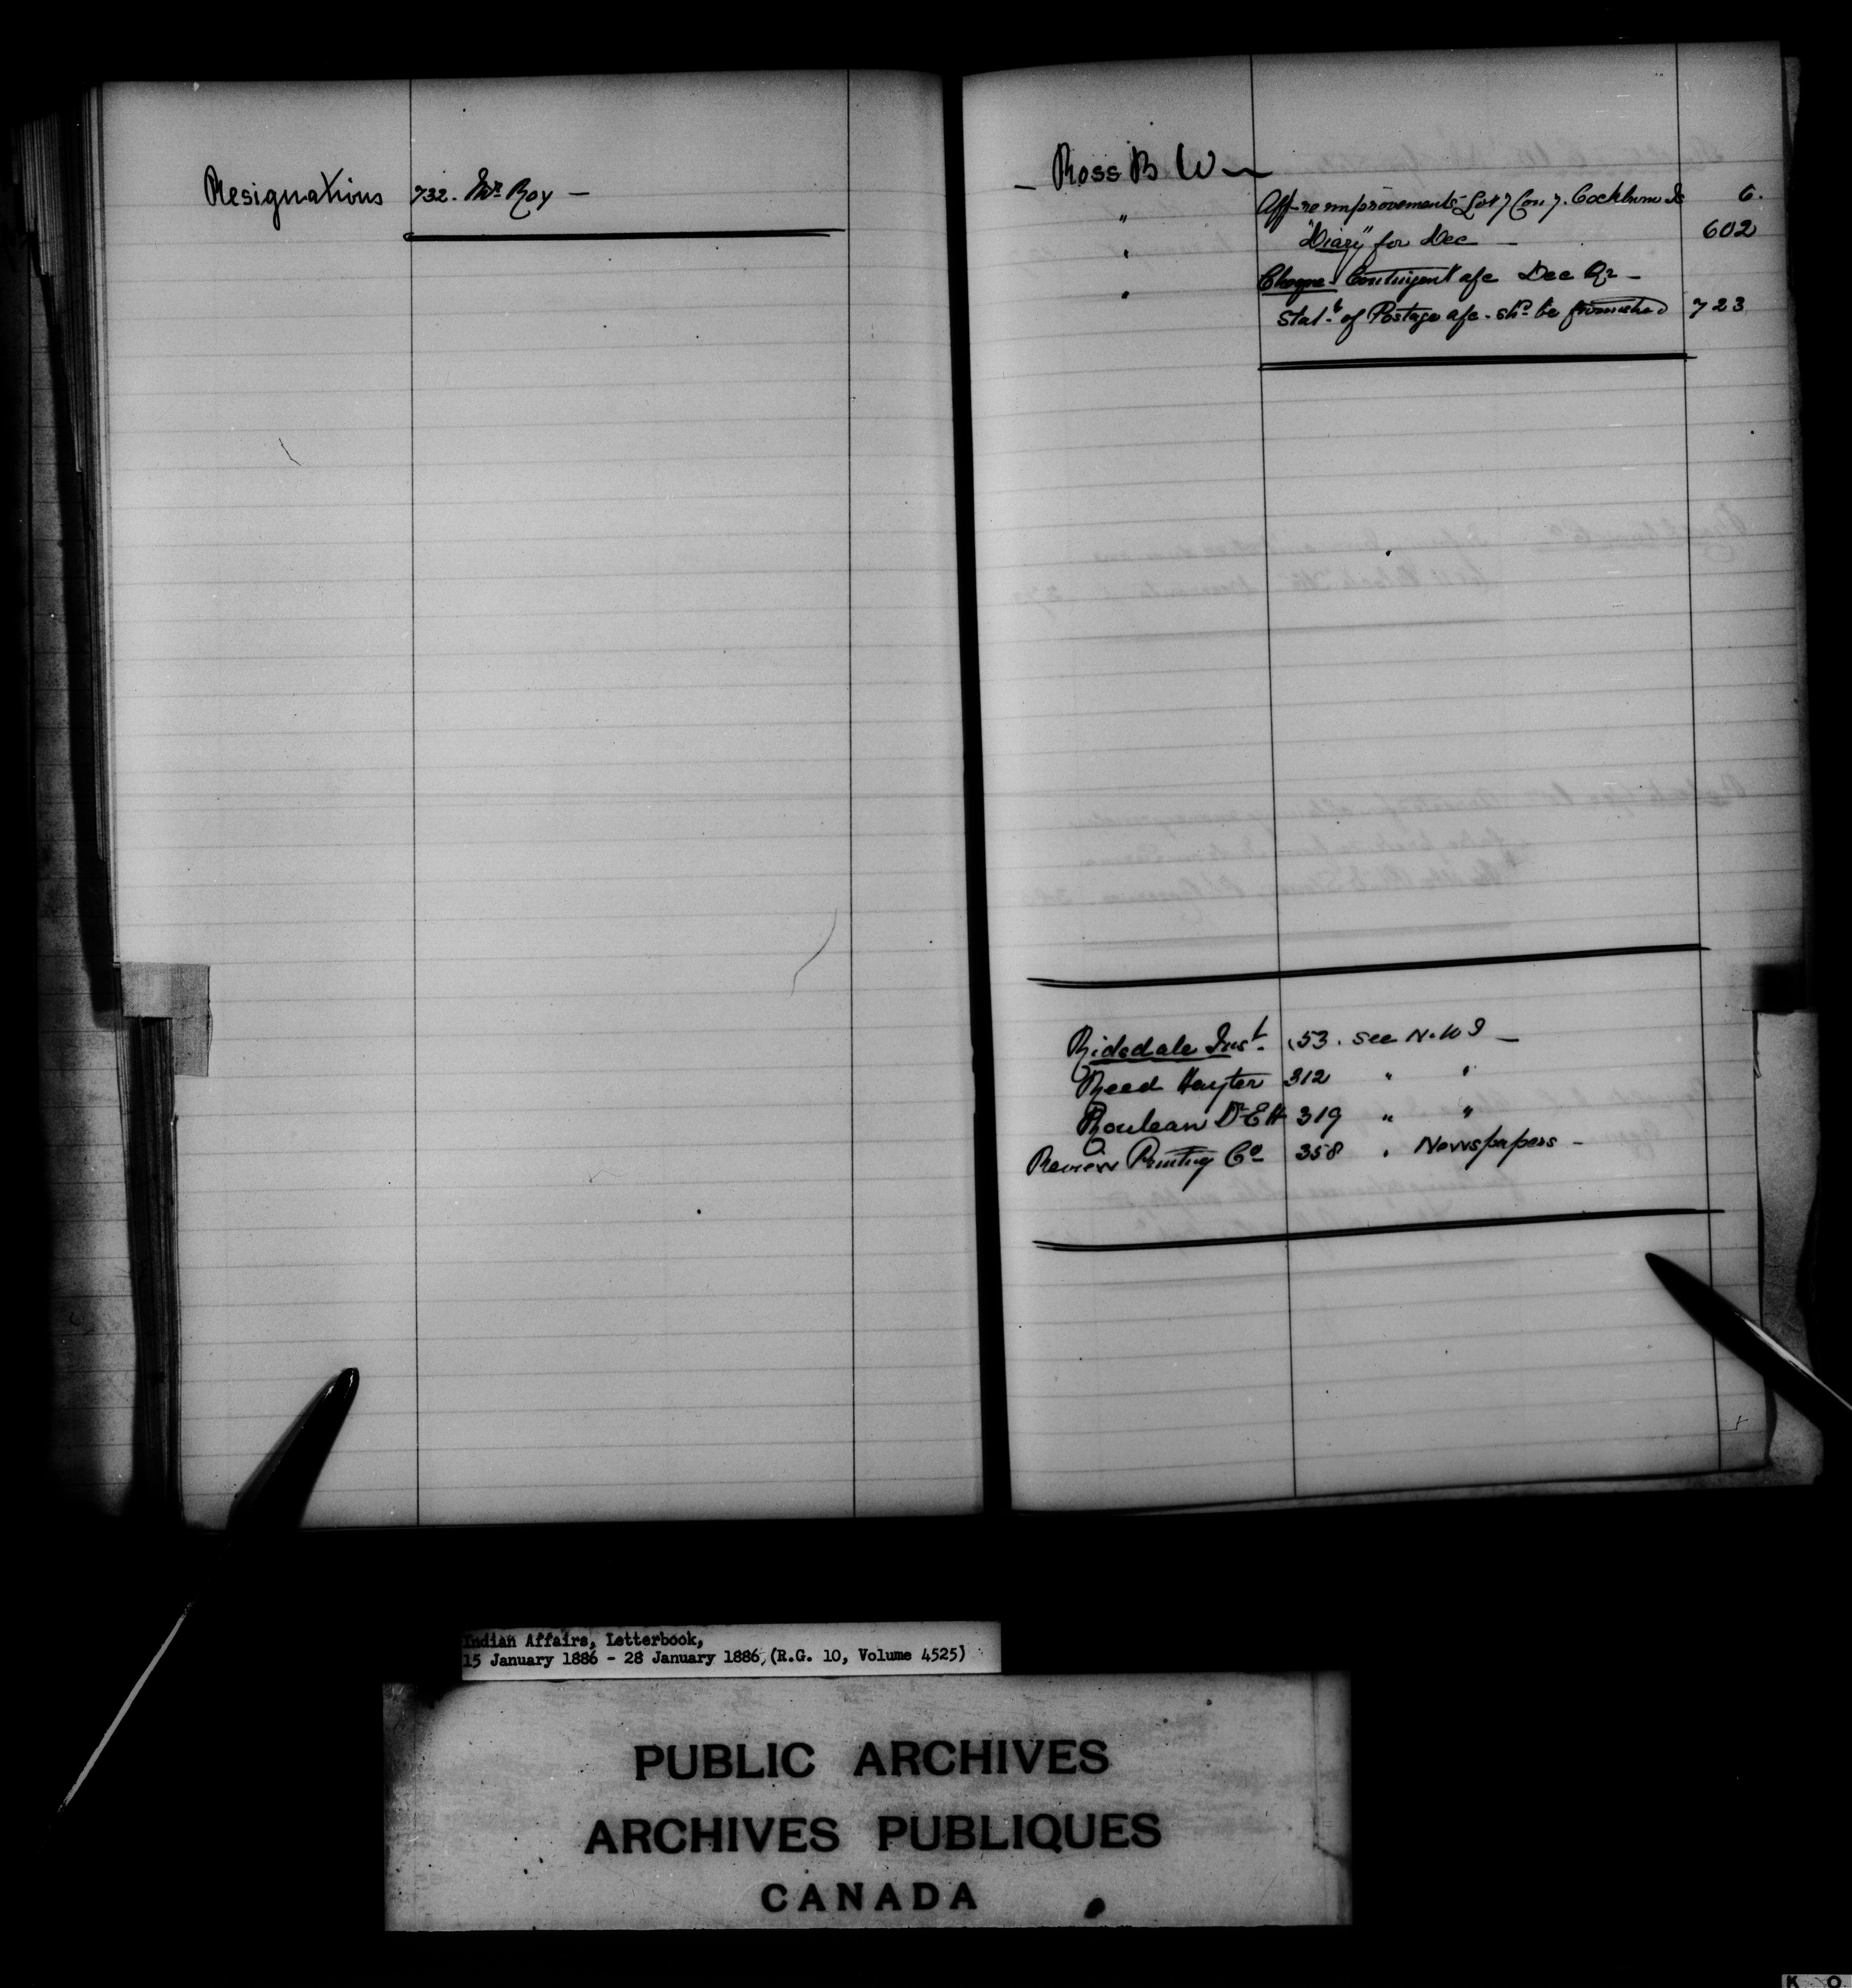 Resignations 732. Mr. Roy —
— Ross B W —
" Aff- re improvements Lot 7 Con 7. Cockburn Is 6.
" "Diary" for Dec — 602
" Cheque - Contingent a/c Dec Qr —
Stat.t of Postage a/c - shd. be furnished 723
Ridsdale Inst. 53. see N.W.T —
Reed Hayter 312 " "
Rouleau Dr E H 319 " "
Review Printing Co 358 " Newspapers —
Indian Affairs, Letterbook,
15 January 1886 - 28 January 1886, (R.G. 10, Volume 4525)
PUBLIC ARCHIVES
ARCHIVES PUBLIQUES
CANADA
K O